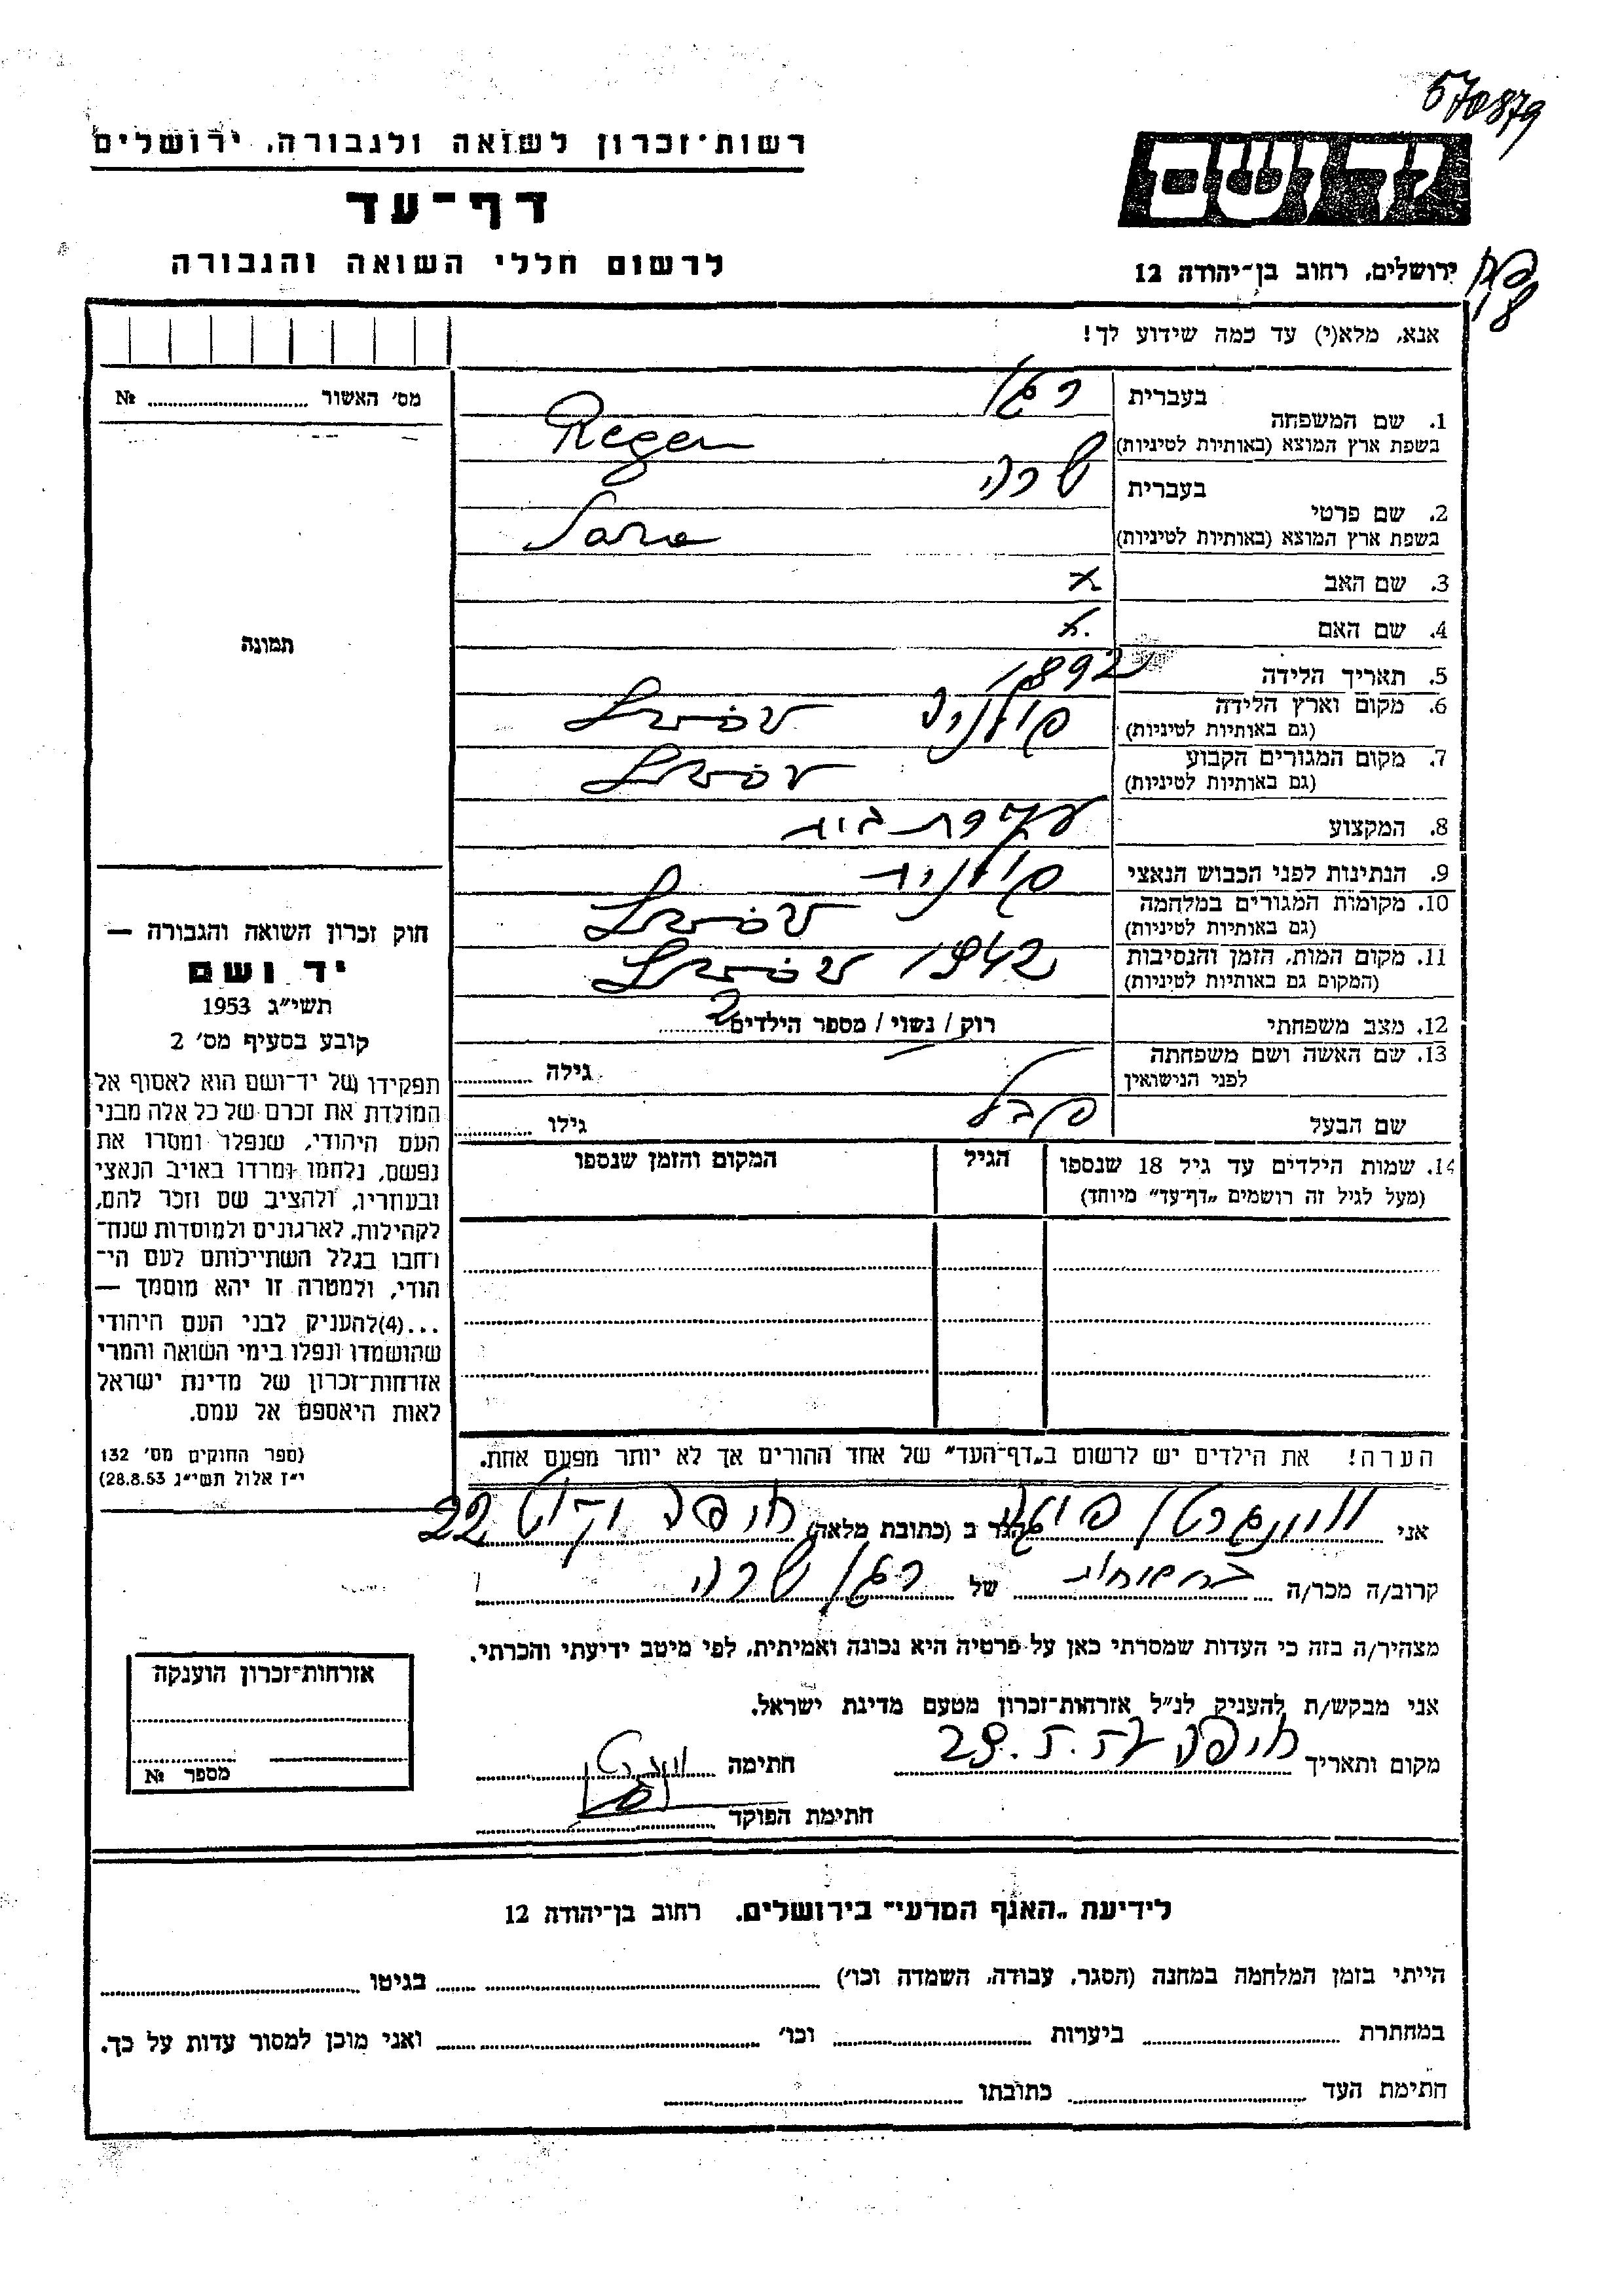 570879
רשות-זכרון לשואה ולגבורה, ירושלים
דף-עד
לרשום חללי השואה והגבורה
יד ושם
ירושלים, רחוב בן-יהודה 12
אנא, מלא(י) עד כמה שידוע לך!
מס׳ האשור № ........
1. שם המשפחה
בעברית רגן
בשפת ארץ המוצא (באותיות לטיניות) Regen
2. שם פרטי
בעברית שרה
בשפת ארץ המוצא (באותיות לטיניות) Sara
3. שם האב x
4. שם האם x.
5. תאריך הלידה 1892
6. מקום וארץ הלידה
(גם באותיות לטיניות) פולניה Lwow
7. מקום המגורים הקבוע
(גם באותיות לטיניות) Lwow
8. המקצוע עקרת בית
9. הנתינות לפני הכבוש הנאצי פולנית
10. מקומות המגורים במלחמה
(גם באותיות לטיניות) Lwow
11. מקום המות, הזמן והנסיבות
(המקום גם באותיות לטיניות) Lwow 1942
12. מצב משפחתי רוק / נשוי / מספר הילדים 2
13. שם האשה ושם משפחתה
לפני הנישואין גילה ........
שם הבעל גילו ........
14. שמות הילדים עד גיל 18 שנספו הגיל המקום והזמן שנספו
(מעל לגיל זה רושמים „דף-עד״ מיוחד)
הערה! את הילדים יש לרשום ב„דף-העד״ של אחד ההורים אך לא יותר מפעם אחת.
תמונה
חוק זכרון השואה והגבורה —
יד ושם
תשי״ג 1953
קובע בסעיף מס׳ 2
תפקידו של יד-ושם הוא לאסוף אל
המולדת את זכרם של כל אלה מבני
העם היהודי, שנפלו ומסרו את
נפשם, נלחמו ומרדו באויב הנאצי
ובעוזריו, ולהציב שם וזכר להם,
לקהילות, לארגונים ולמוסדות שנח-
רחבו בגלל השתייכותם לעם הי-
הודי, ולמטרה זו יהא מוסמך —
...(4)להעניק לבני העם היהודי
שהושמדו ונפלו בימי השואה והמרי
אזרחות-זכרון של מדינת ישראל
לאות היאספם אל עמם.
(ספר החוקים מס׳ 132
י״ז אלול תשי״ג 28.8.53)
אני הגר ב (כתובת מלאה) חיפה 22
קרוב/ה מכר/ה של רגן שרה
מצהיר/ה בזה כי העדות שמסרתי כאן על פרטיה היא נכונה ואמיתית, לפי מיטב ידיעתי והכרתי.
אני מבקש/ת להעניק לנ״ל אזרחות-זכרון מטעם מדינת ישראל.
מקום ותאריך חיפה חתימה
חתימת הפוקד
אזרחות-זכרון הוענקה
מספר №
לידיעת „האגף המדעי״ בירושלים, רחוב בן-יהודה 12
הייתי בזמן המלחמה במחנה (הסגר, עבודה, השמדה וכו׳) ........ בגיטו ........
במחתרת ........ ביערות ........ וכו׳ ........ ואני מוכן למסור עדות על כך.
חתימת העד ........ כתובתו ........